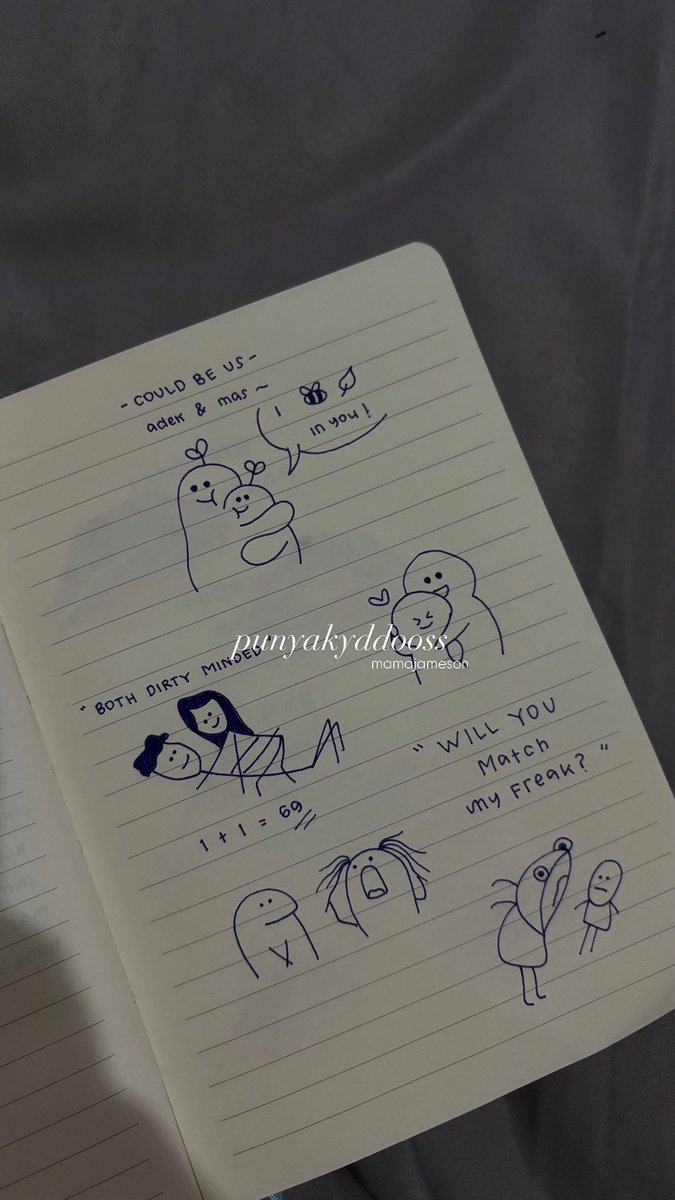 - COULD BE US -
adek & mas ~
I
in you!
punyakyddooss
mamajameson
"BOTH DIRTY MINDED"
1 + 1 = 69
"WILL YOU
Match
my Freak?"